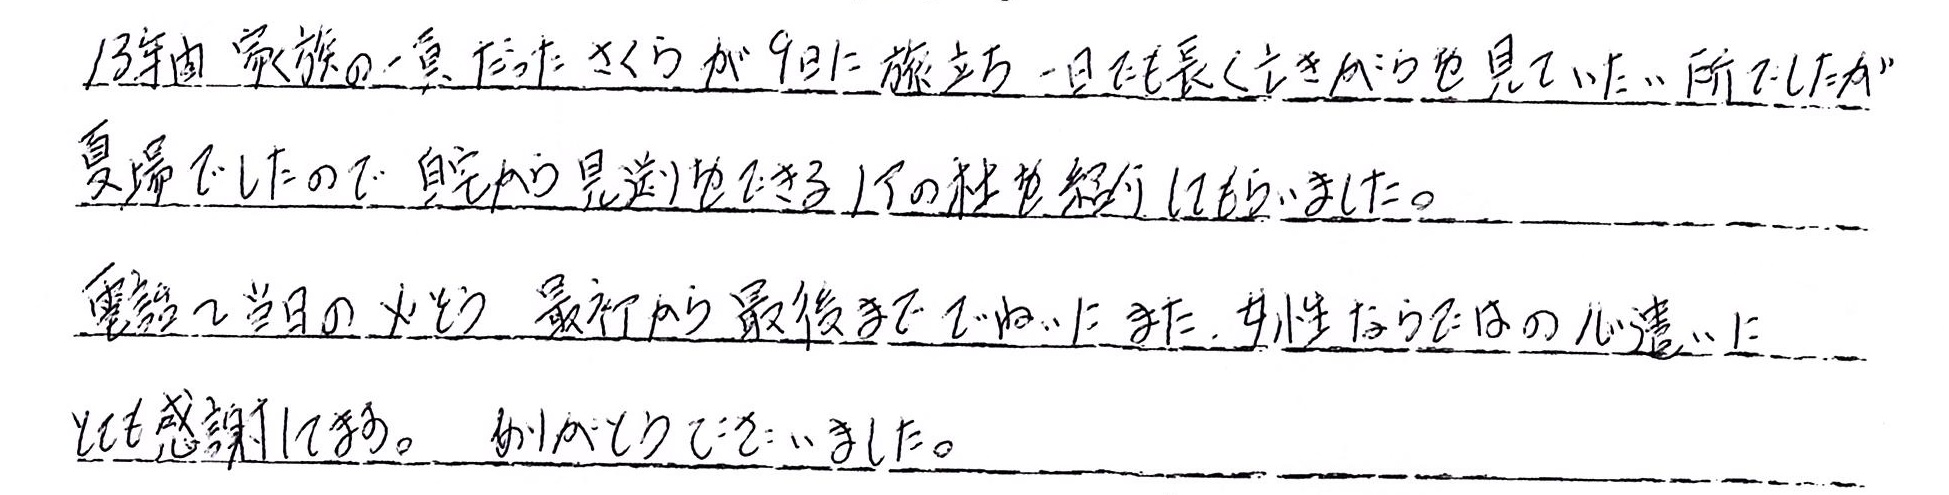 13年間 家族の一員だったさくらが9日に旅立ち 一日でも長くなきがらを見ていたい所でしたが
夏場でしたので 自宅から見送りをできる の社を紹介してもらいました。
電話で当日の火そう 最初から最後まで でねいに また、女性ならではの心遣いに
とても感謝してます。 ありがとうございました。